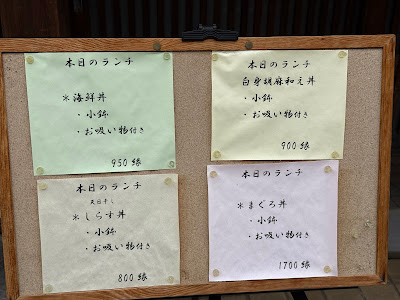 本日のランチ
*海鮮丼
・小鉢
・お吸い物付き
950縁
本日のランチ
白身胡麻和え丼
・小鉢
・お吸い物付き
900縁
本日のランチ
天日干し
*しらす丼
・小鉢
・お吸い物付き
800縁
本日のランチ
*まぐろ丼
・小鉢
・お吸い物付き
1700縁